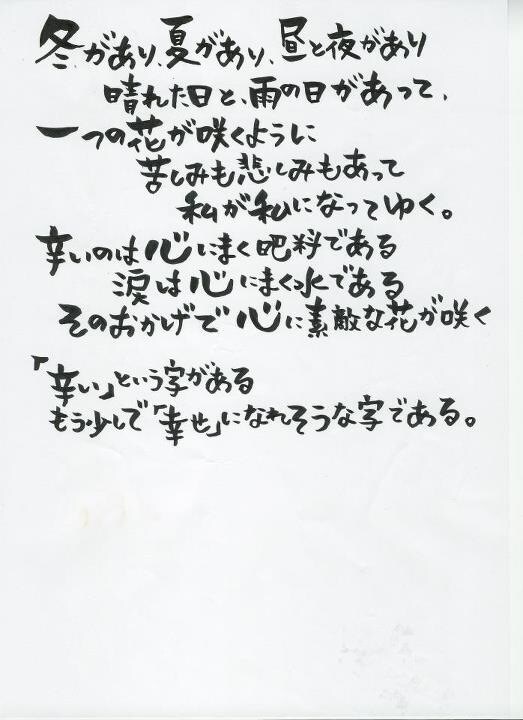 冬があり、夏があり、昼と夜があり
晴れた日と、雨の日があって、
一つの花が咲くように
苦しみも悲しみもあって
私が私になってゆく。
辛いのは心にまく肥料である
涙は心にまく水である
そのおかげで心に素敵な花が咲く
「辛い」という字がある
もう少しで「幸せ」になれそうな字である。